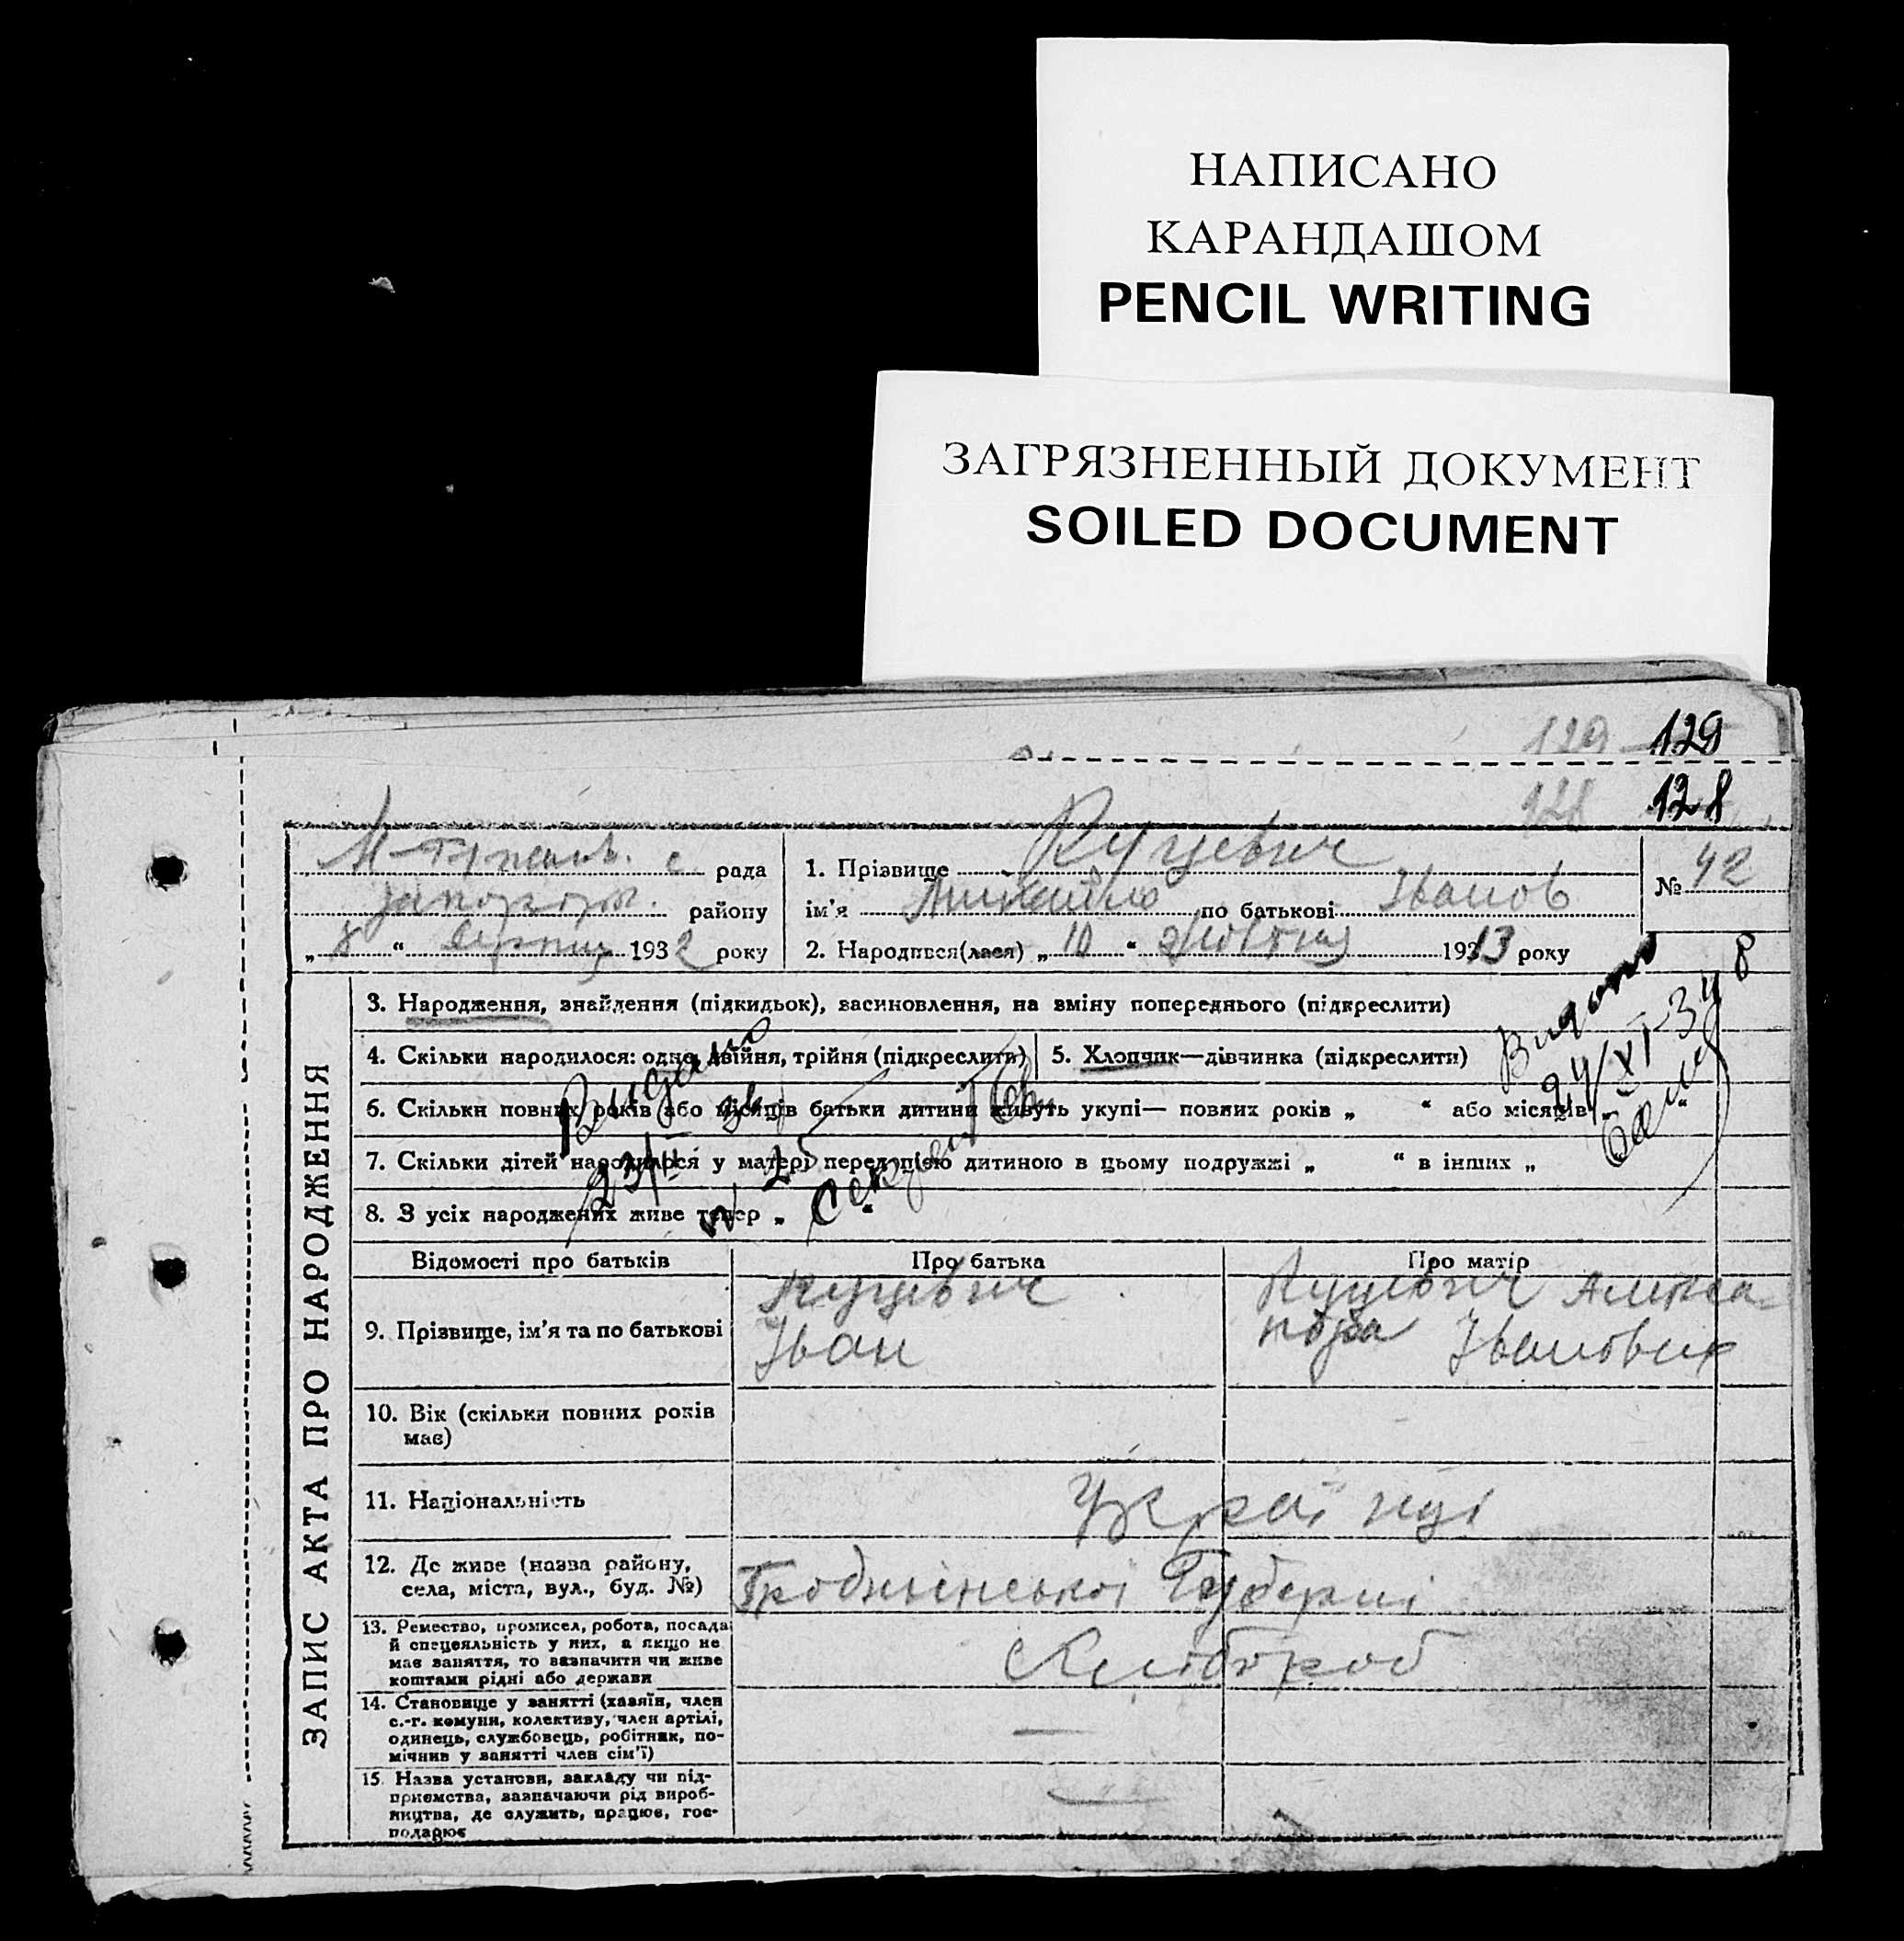 НАПИСАНО
КАРАНДАШОМ
PENCIL WRITING
ЗАГРЯЗНЕННЫЙ ДОКУМЕНТ
SOILED DOCUMENT
129 129
128 128
с. рада
району
„ 8 “ серпня 1932 року
1. Прізвище Куцевич
ім'я Михайло по батькові Іванов
№ 42
2. Народився(лася) „ 10 “ жовтня 1913 року
ЗАПИС АКТА ПРО НАРОДЖЕННЯ
3. Народження, знайдення (підкидьок), засиновлення, на зміну попереднього (підкреслити)
4. Скільки народилося: одно, двійня, трійня (підкреслити)
5. Хлопчик—дівчинка (підкреслити)
6. Скільки повних років або місяців батьки дитини живуть укупі— повних років „ “ або місяців „ “
7. Скільки дітей народилося у матері перед цією дитиною в цьому подружжі „ “ в інших „
8. З усіх народжених живе тепер „ “
Видано
Видано
24/XI-34
8
Відомості про батьків
Про батька
Про матір
9. Прізвище, ім'я та по батькові
Куцевич
Іван
Куцевич Алекса-
ндра Івановна
10. Вік (скільки повних років
має)
11. Національність
Українці
12. Де живе (назва району,
села, міста, вул., буд. №)
Гродненської Губерні
13. Ремество, промисел, робота, посада
й спецеяльність у них, а якщо не
має заняття, то зазначити чи живе
коштами рідні або держави
Хлібороб
14. Становище у занятті (хазяїн, член
с.-г. комуни, колективу, член артілі,
одинець, службовець, робітник, по-
мічнив у занятті член сім'ї)
—
15. Назва установи, закладу чи під-
приємства, зазначаючи рід вироб-
ництва, де служить, працює, гос-
подарює